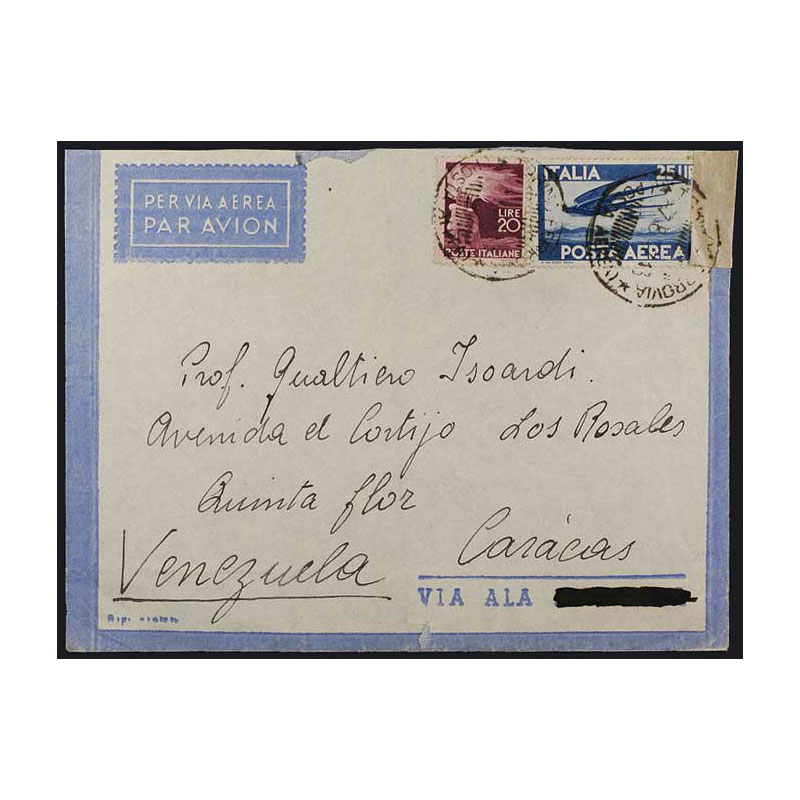 PER VIA AEREA
PAR AVION
LIRE
20
POSTE ITALIANE
ITALIA 25 LIRE
POSTA AEREA
Prof. Gualtiero Isoardi.
Avenida el Cortijo Los Rosales
Quinta flor
Carácas
Venezuela
VIA ALA